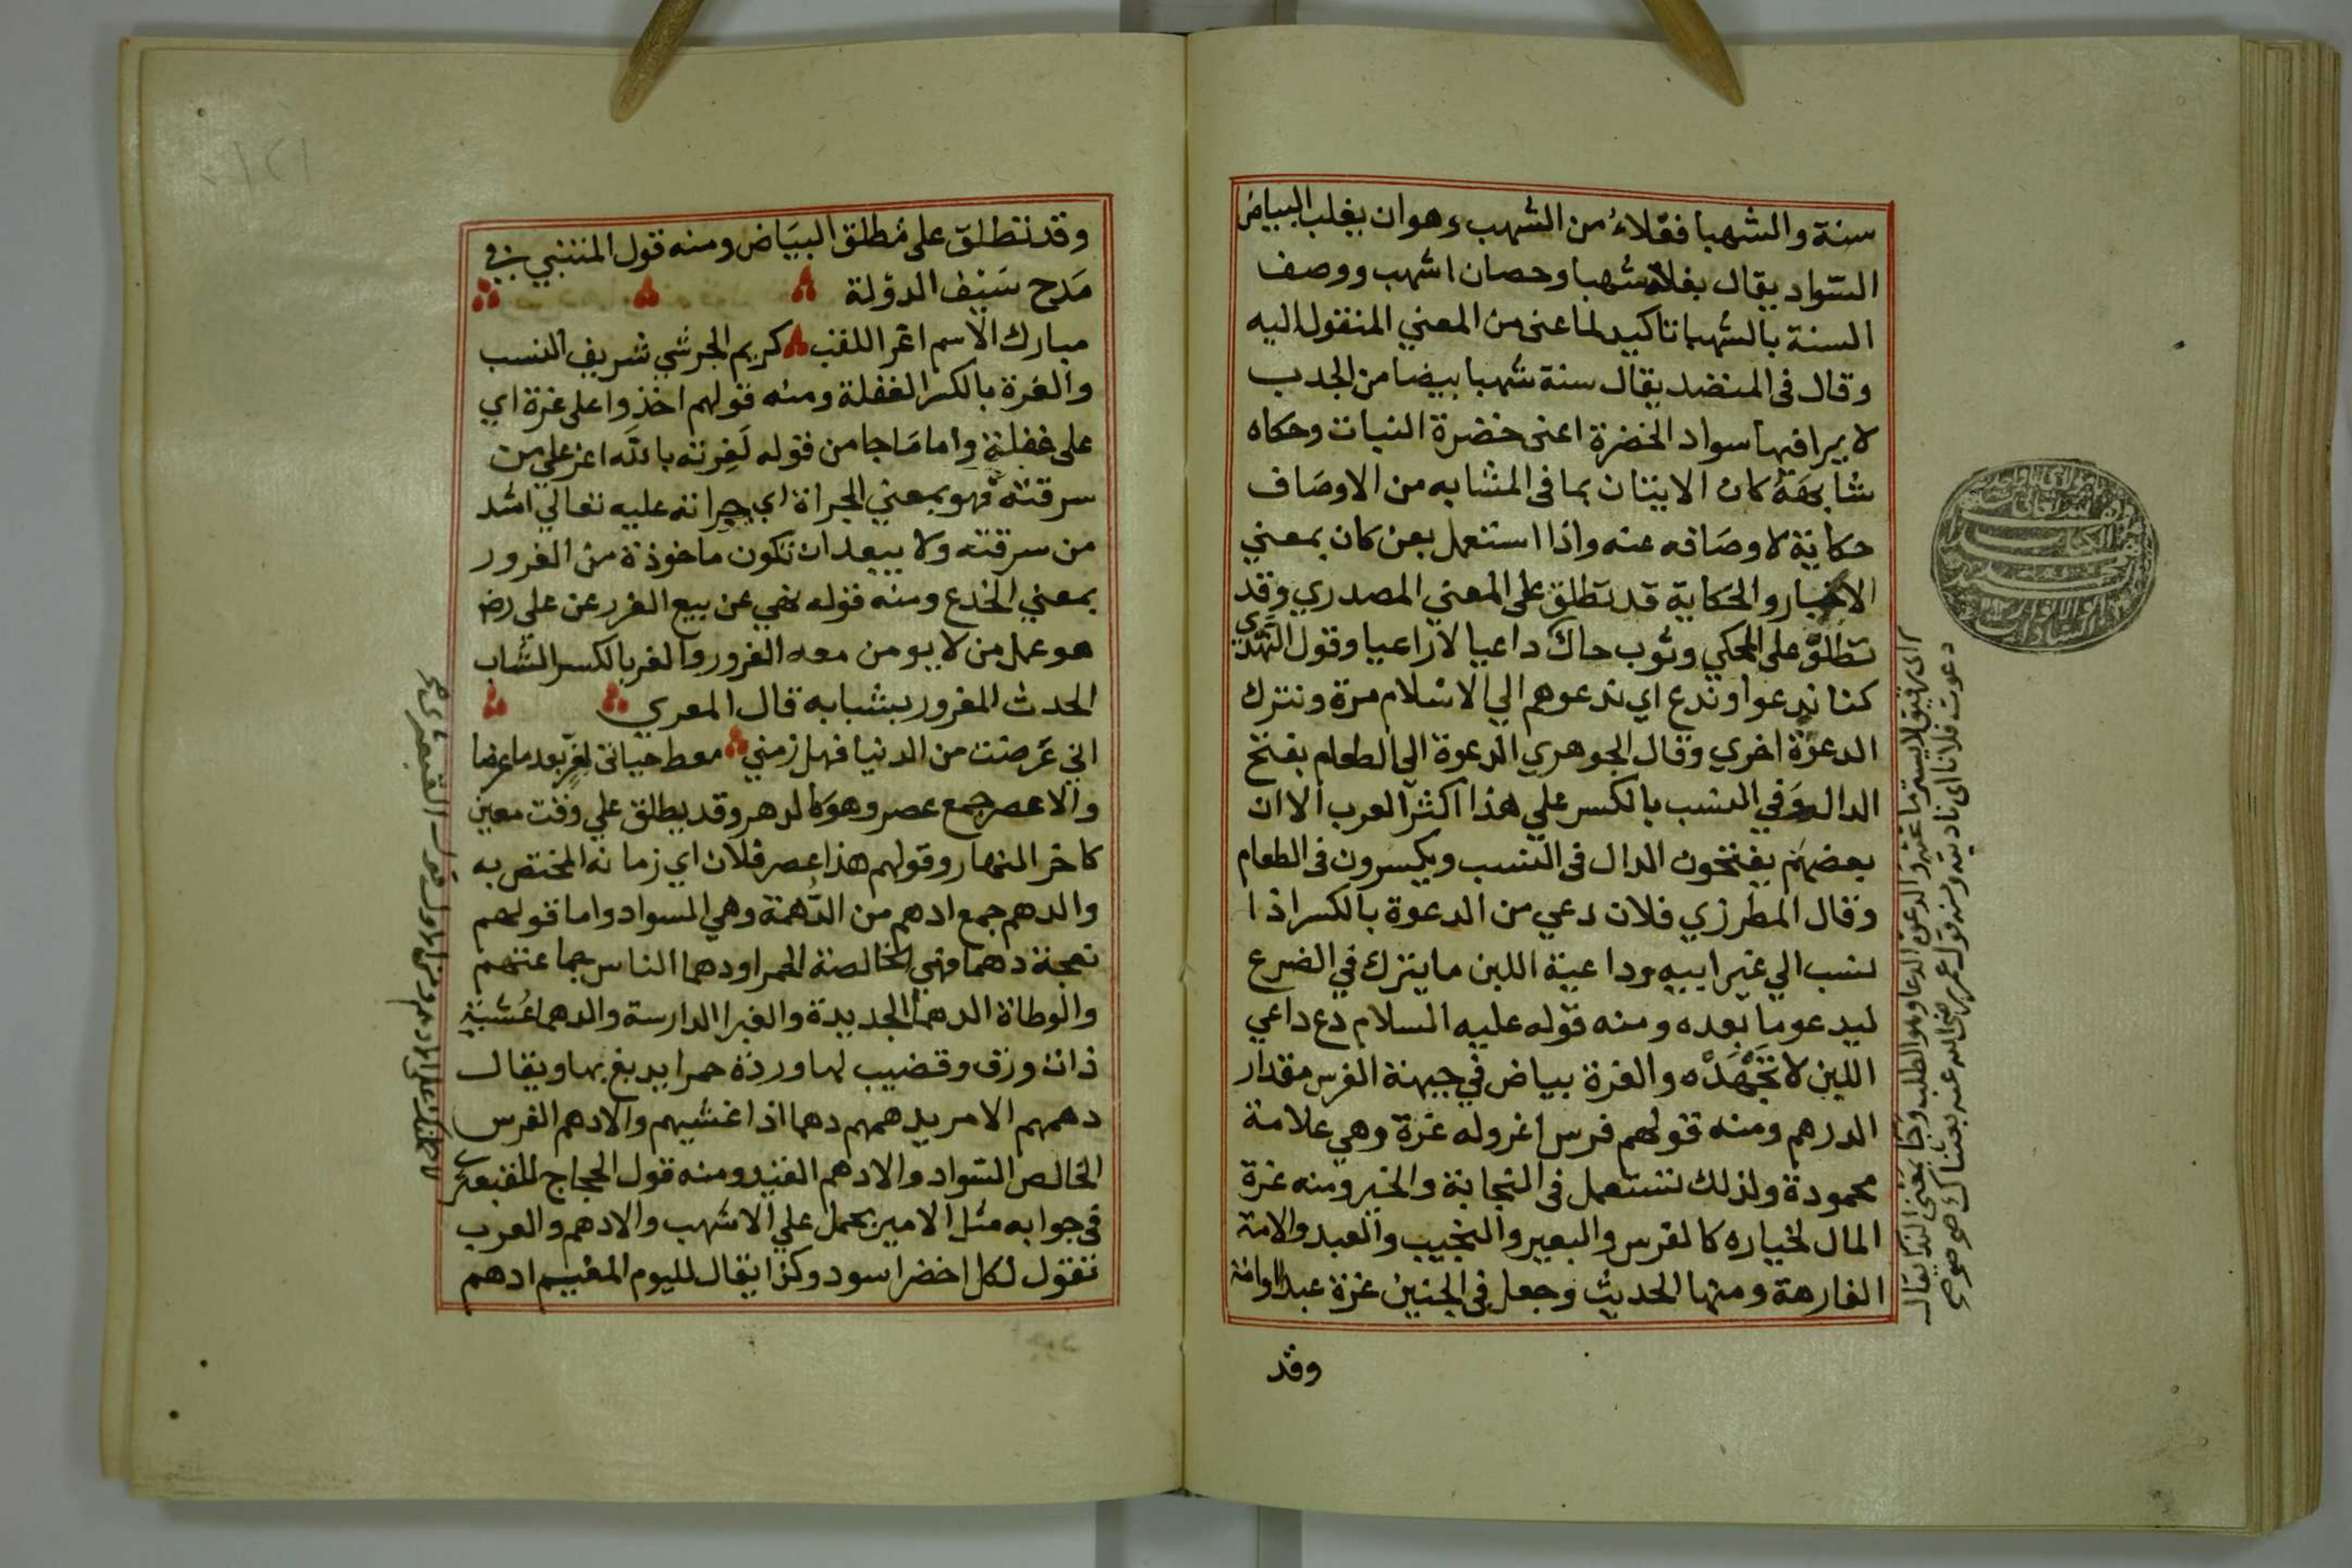 سنة والشهبا فعلاءُ من الشهب وهو ان يغلب البياض
السواد يقال بغلة شهبا وحصان اشهب ووصف
السنة بالشهبا تاكيد لما عنى من المعني المنقول اليه
وقال فى المنضد يقال سنة شهبا بيضا من الجدب
لا يرا فيها سواد الخضرة اعنى خضرة النبات وحكاه
شابهه كان الاتيان بما فى المشابه من الاوصاف
حكاية لاوصافه عنه واذا استعمل بعن كان بمعني
الاخبار والحكاية قد تطلق على المعني المصدري وقد
تطلق على المحكي وثوب حاك داعيا لا راعيا وقول النهدي
كنا ندعوا وندع اي ندعوهم الي الاسلام مرة ونترك
الدعوة اخري وقال الجوهري الدعوة الي الطعام بفتح
الدال وفي النسب بالكسر علي هذا اكثر العرب الا ان
بعضهم يفتحون الدال فى النسب ويكسرون فى الطعام
وقال المطرزي فلان دعي من الدعوة بالكسر اذا
نسب الي غير ابيه وداعية اللبن ما يترك في الضرع
ليدعو ما بعده ومنه قوله عليه السلام دع داعي
اللبن لا تَجْهَدْه والغرة بياض في جبهة الفرس مقدار
الدرهم ومنه قولهم فرس اغر وله غرة وهي علامة
محمودة ولذلك تستعمل فى النجابة والخير ومنه غرة
المال لخياره كالفرس والبعير والنجيب والعبد والامة
الفارهة ومنها الحديث وجعل في الجنين غرة عبدا او امة
وقد
دعوت فلانا اى ناديته ومنه قول عمر رضى الله عنه
وقد تطلق على مُطلق البيَاض ومنه قول المتنبي في
مَدح سَيْف الدوْلة
مبارك الاسم اغر اللقب كريم الجرشي شريف النسب
والغرة بالكسر الغفلة ومنه قولهم اخذوا على غرة اي
على غفلة واما مَا جا من قوله لَغِرته بالله اعز علي من
سرقته فهو بمعني الجراة اي جراته عليه تعالي اشد
من سرقته ولا يبعد ان تكون ماخوذة من الغرور
بمعني الخدع ومنه قوله نهي عن بيع الغرر عن على رض
هو عمل من لا يومن معه الغرور والغر بالكسر الشاب
الحدث المغرور بشبابه قال المعري
اني غَرضت من الدنيا فهل زمني معط حياتى لغر بعد ما غرضا
والاعصر جمع عصر وهو كالدهر وقد يطلق علي وقت معين
كاخر النهار وقولهم هذا عصر فلان اي زمانه المختص به
والدهم جمع ادهم من الدُّهمة وهي السواد واما قولهم
نعجة دهما فهي الخالصة الحمرا ودهما الناس جماعتهم
والوطاة الدهما الجديدة والغبرا الدارسة والدهما عُشبة
ذات ورق وقضيب لها وردة حمرا يدبغ بها ويقال
دهمهم الامر يدهمهم دهما اذا غشيهم والادهم الفرس
الخالص السواد والادهم القيد ومنه قول الحجاج للقبعثرى
فى جوابه مثل الامير يحمل علي الاشهب والادهم والعرب
تقول لكل اخضر اسود وكذا يقال لليوم المغيم ادهم